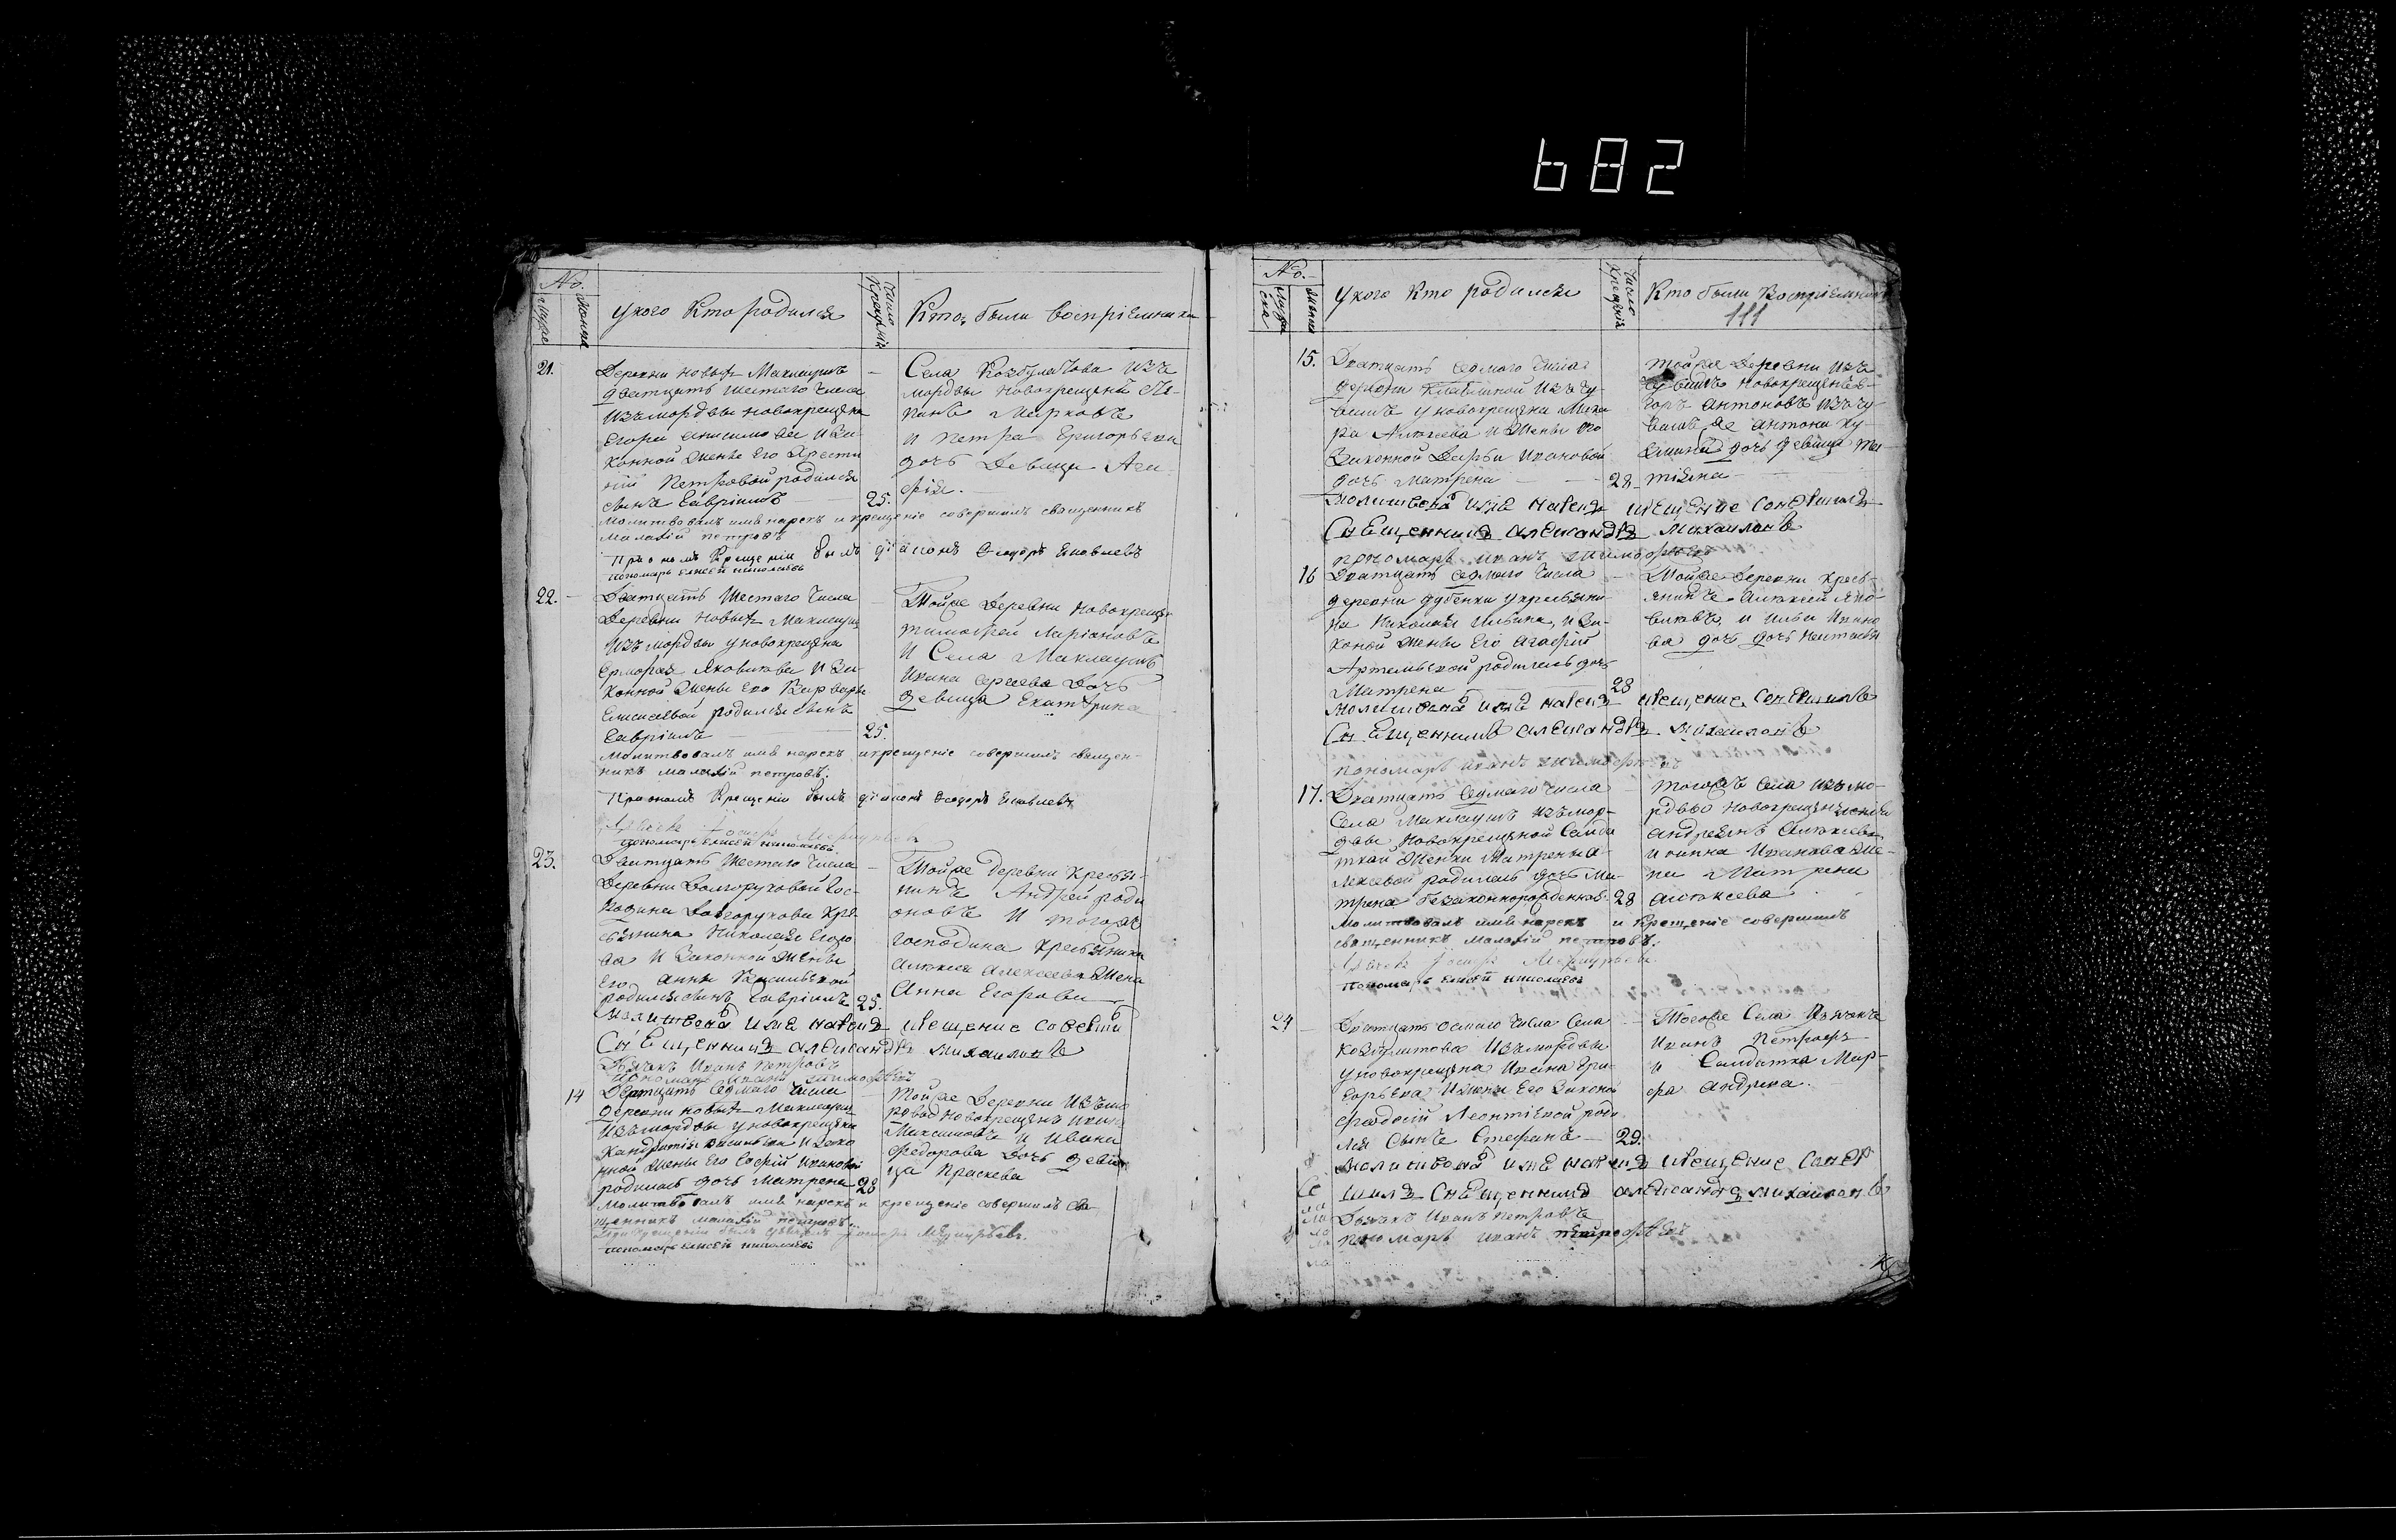 682
No.
мужеска
женска
У кого Кто родился
Число Крещенія
Кто были воспріемники
21.
Деревни новыхъ Маклаушъ
дватцать шестаго числа
Изъ мордвы новокрещена
Егора Анисимова и за-
конной жены Его Хрести
ніи Петровой родился
сынъ Гавріилъ
25.
Села Козбулатова изъ
мордвы новокрещенъ Сте-
панъ Марковъ
и Петра Григорьева
дочь девица Ага
фія.
молитвовалъ имя нарекъ и крещеніе совершилъ священникъ
малахій петровъ
При ономъ Крещеніи былъ діаконъ Феодоръ Яковлевъ
пономарь елисей николаевъ
22.
Дватцать шестаго числа
Деревни новыхъ Маклаушъ
Изъ мордвы у новокрещена
Ермолая Яковлева и за-
конной жены Его Варвары
Елисеевой родился сынъ
Гавріилъ
25.
Тойже Деревни новокрещенъ
тимофей Ларіоновъ
и Села Маклаушъ
Ивана Сергеева Дочь
девица Екатерина
молитвовалъ имя нарекъ и крещеніе совершилъ священ-
никъ малахій петровъ.
При ономъ Крещеніи былъ діаконъ Феодоръ Яковлевъ
пономарь елисей николаевъ
23.
Дватцать шестаго числа
Деревни Долгоруковой Гос-
подина Долгорукова кре-
стьянина Николая Егоро
ва и Законной жены
Его Анны Васильевой
родился сынъ Гавріилъ
25.
Тойже деревни крестья-
нинъ Андрей роди
оновъ и тогожъ
господина крестьянина
Алексея Алексеева жена
Анна Егорова
молитвовалъ имя нарекъ крещение соверши
Священникъ александръ михаиловъ
Дьячокъ Иванъ Петровъ
пономарь иванъ тимофеевъ
14
Двятцать седмаго числа
деревни новыхъ Маклаушъ
Изъ мордвы у новокрещена
Кандратія васильева и зако
нной жены Его Софіи Ивановой
родилась дочь Матрена
28
тойже Деревни Изъ мо
рдвы новокрещенъ Иванъ
Максимовъ и Ивана
Федорова Дочь деви
ца Праскева
молитвовалъ имя нарекъ и крещеніе совершилъ свя-
щенникъ малахій петровъ.
пономарь елисей николаевъ
No.
мужеска
женска
У кого Кто родился
Число Крещенія
Кто были Воспріемники
111
15.
Двятцать седмаго числа
деревни изъ чу-
вашъ у новокрещена
Алексеева и жены его
Законной Дарьи Ивановой
дочь Матрена
28
тойже Деревни Изъ
чувашъ новокрещенъ Е-
горъ Антоновъ изъ чу-
вашъ же Антона Ку
дочь девица та
тіяна
молитвовалъ имя нарекъ крещение совершилъ
Священникъ александръ михаиловъ
пономарь иванъ тимофеевъ
16
Двятцать седмаго числа
деревни дубенки у крестьяни-
на Николая Ильина, и за-
коной жены Его Агафіи
Артемьевой родилась дочь
Матрена
28
Тойже Деревни Кресть-
янинъ Алексей Яко-
влевъ, и Ильи Ивано
ва дочь дочь Настасья
молитвовалъ имя нарекъ крещение совершилъ
Священникъ александръ михаиловъ
пономарь иванъ тимофеевъ
17.
Двятцать седмаго числа
Села Маклаушъ Изъ мор-
двы новокрещеной Салда
ткой женки Матрены А-
лексевой родилась дочь Ма-
трена безаконнорожденная.
28
тогожъ Села изъ мо-
рдвы новокрещенъ
Андреянъ Алексеевъ
Иванова же-
на Матрена
Алексеева
молитвовалъ имя нарекъ и Крещеніе совершилъ
священникъ малахій петровъ.
пономарь елисей николаевъ
24
Двятцать осмаго числа Села
Козбулатова Изъ мордвы
у новокрещена Ивана Гри-
горьева и жены Его Законой
Феодосіи Леонтіевой роди
лся сынъ Стефанъ
29.
Тогоже Села Дьячокъ
Иванъ Петровъ
и Салдатка Мар-
фа Андреева.
молитвовалъ имя нарекъ крещение совер
шилъ Священникъ александръ михаиловъ
Дьячокъ Иванъ Петровъ
пономарь иванъ тимофеевъ